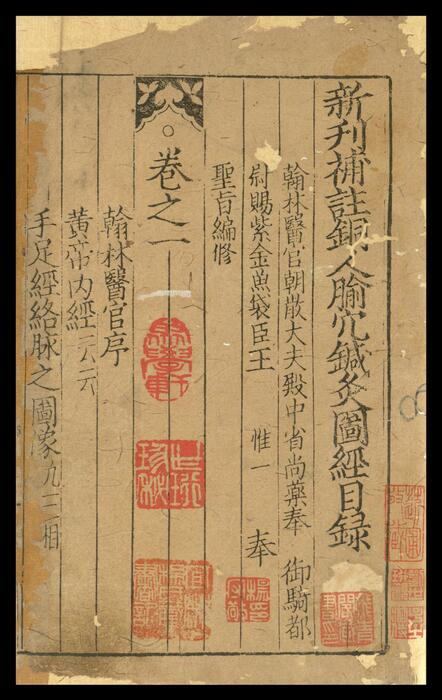 新刋補註銅人腧穴鍼灸圖經目録
翰林醫官朝散大夫殿中省尚藥奉 御騎都
尉賜紫金魚袋臣王 惟一 奉
聖旨編修
卷之一
翰林醫官序
黃帝内經云云
手足經絡脉之圖象九三相